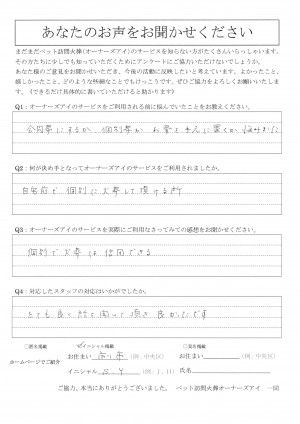 あなたのお声をお聞かせください
まだまだペット訪問火葬(オーナーズアイ)のサービスを知らない方がたくさんいらっしゃいます。
そのかたちに少しでも知っていただくためにアンケートにご協力いただけないでしょうか。
あなた様のご意見をお聞かせいただき、今後の活動に反映したいと考えています。よかったこと、
嬉しかったこと、どのような些細なことでもけっこうです。ぜひご協力をよろしくお願いいたします。(できるだけ具体的に書いていただけると助かります)
Q1:オーナーズアイのサービスをご利用される前に悩んでいたことをお教えください。
合同葬にするか、個別葬か お骨を手元に置くか 悩みました
Q2:何が決め手となってオーナーズアイのサービスをご利用されましたか。
自宅前で個別に火葬して頂ける所
Q3:オーナーズアイのサービスを実際にご利用なさってみての感想をお聞かせください。
個別で火葬は信用できる
Q4:対応したスタッフの対応はいかがでしたか。
とても良く話を聞いて頂き良かったです
□匿名掲載
イニシャル掲載
□実名掲載
ホームページでご紹介
お住まい
(例:中央区)
お住まい
(例:中央区)
イニシャル S.Y (例:J.H)
氏名
ご協力、本当にありがとうございました。 ペット訪問火葬オーナーズアイ 一同